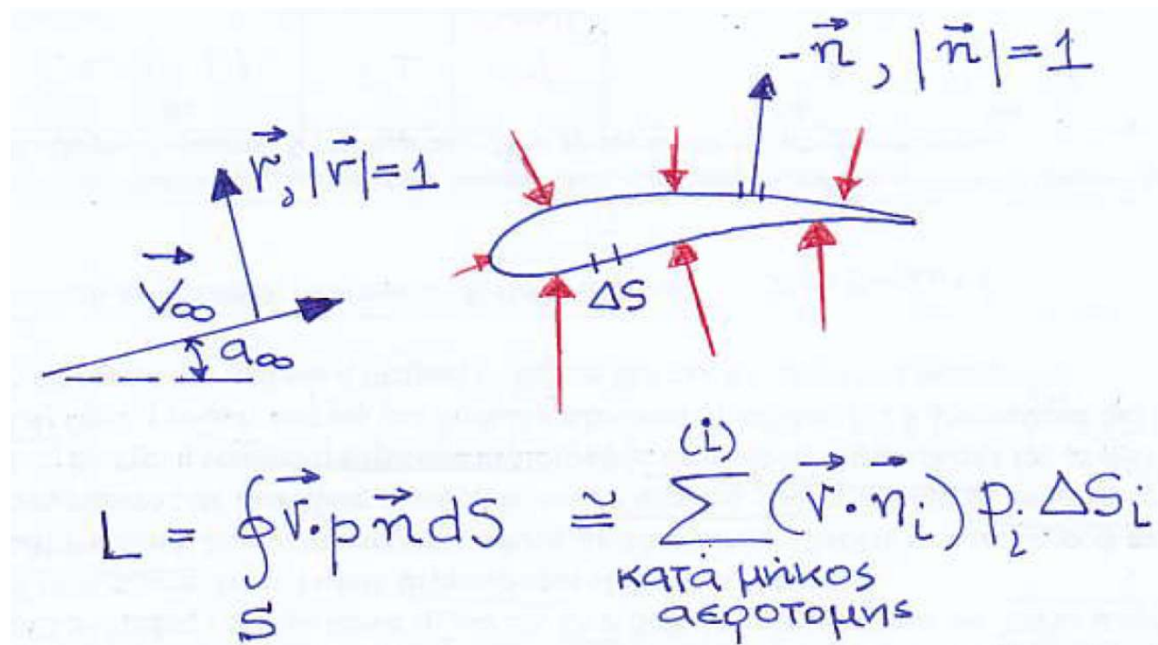 -n⃗, |n⃗|=1
r⃗, |r⃗|=1
V⃗∞
α∞
ΔS
L = ∮_S r⃗·p n⃗ dS ≅ Σ^(i) (r⃗·n⃗_i) p_i ΔS_i
κατά μήκος
αεροτομης